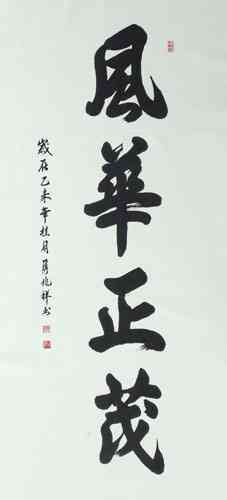 風華正茂
歲在乙未年桂月肖兆祥书